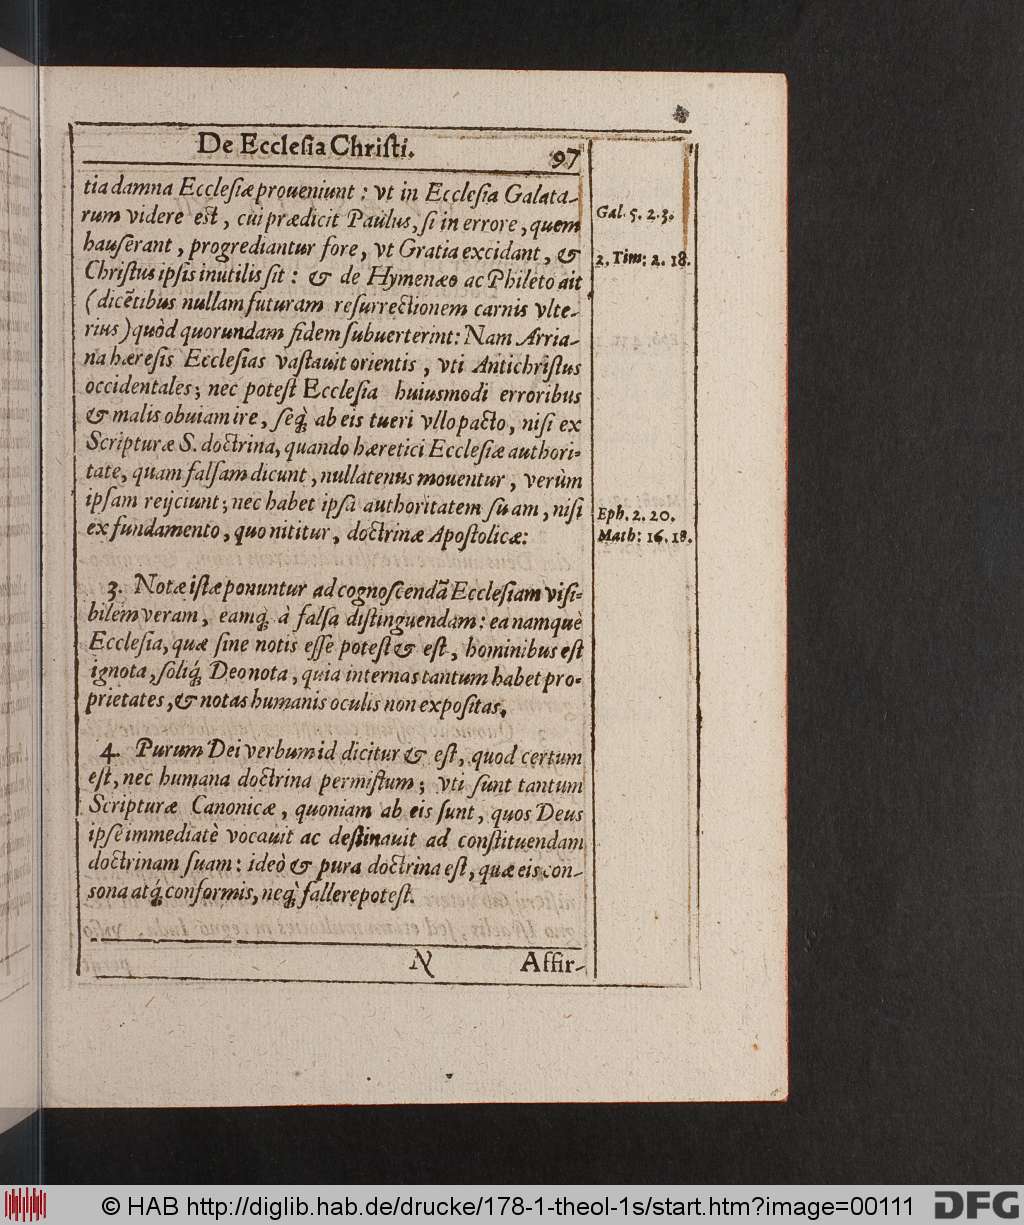 De Ecclesia Christi. 97
tia damna Ecclesiæ proueniunt: vt in Ecclesia Galata-
rum videre est, cui prædicit Paulus, si in errore, quem
hauserant, progrediantur fore, vt Gratia excidant, &
Christus ipsis inutilis sit: & de Hymenæo ac Phileto ait
(dicẽtibus nullam futuram resurrectionem carnis vlte-
rius) quòd quorundam fidem subuerterint: Nam Arria-
na hæresis Ecclesias vastauit orientis, vti Antichristus
occidentales; nec potest Ecclesia huiusmodi erroribus
& malis obuiam ire, seq́; ab eis tueri vllo pacto, nisi ex
Scripturæ S. doctrina, quando hæretici Ecclesiæ authori-
tate, quam falsam dicunt, nullatenus mouentur, verùm
ipsam reijciunt; nec habet ipsa authoritatem suam, nisi
ex fundamento, quo nititur, doctrinæ Apostolicæ:
Gal. 5. 2. 3.
2. Tim: 2. 18.
Eph. 2. 20.
Math: 16. 18.
3. Notæ istæ ponuntur ad cognoscendã Ecclesiam visi-
bilem veram, eamq́; à falsa distinguendam: ea namquè
Ecclesia, quæ sine notis esse potest & est, hominibus est
ignota, soliq́; Deo nota, quia internas tantum habet pro-
prietates, & notas humanis oculis non expositas.
4. Purum Dei verbum id dicitur & est, quod certum
est, nec humana doctrina permistum; vti sunt tantum
Scripturæ Canonicæ, quoniam ab eis sunt, quos Deus
ipse immediatè vocauit ac destinauit ad constituendam
doctrinam suam: ideò & pura doctrina est, quæ eis con-
sona atq́; conformis, neq́; fallere potest.
N Affir-
© HAB http://diglib.hab.de/drucke/178-1-theol-1s/start.htm?image=00111
DFG